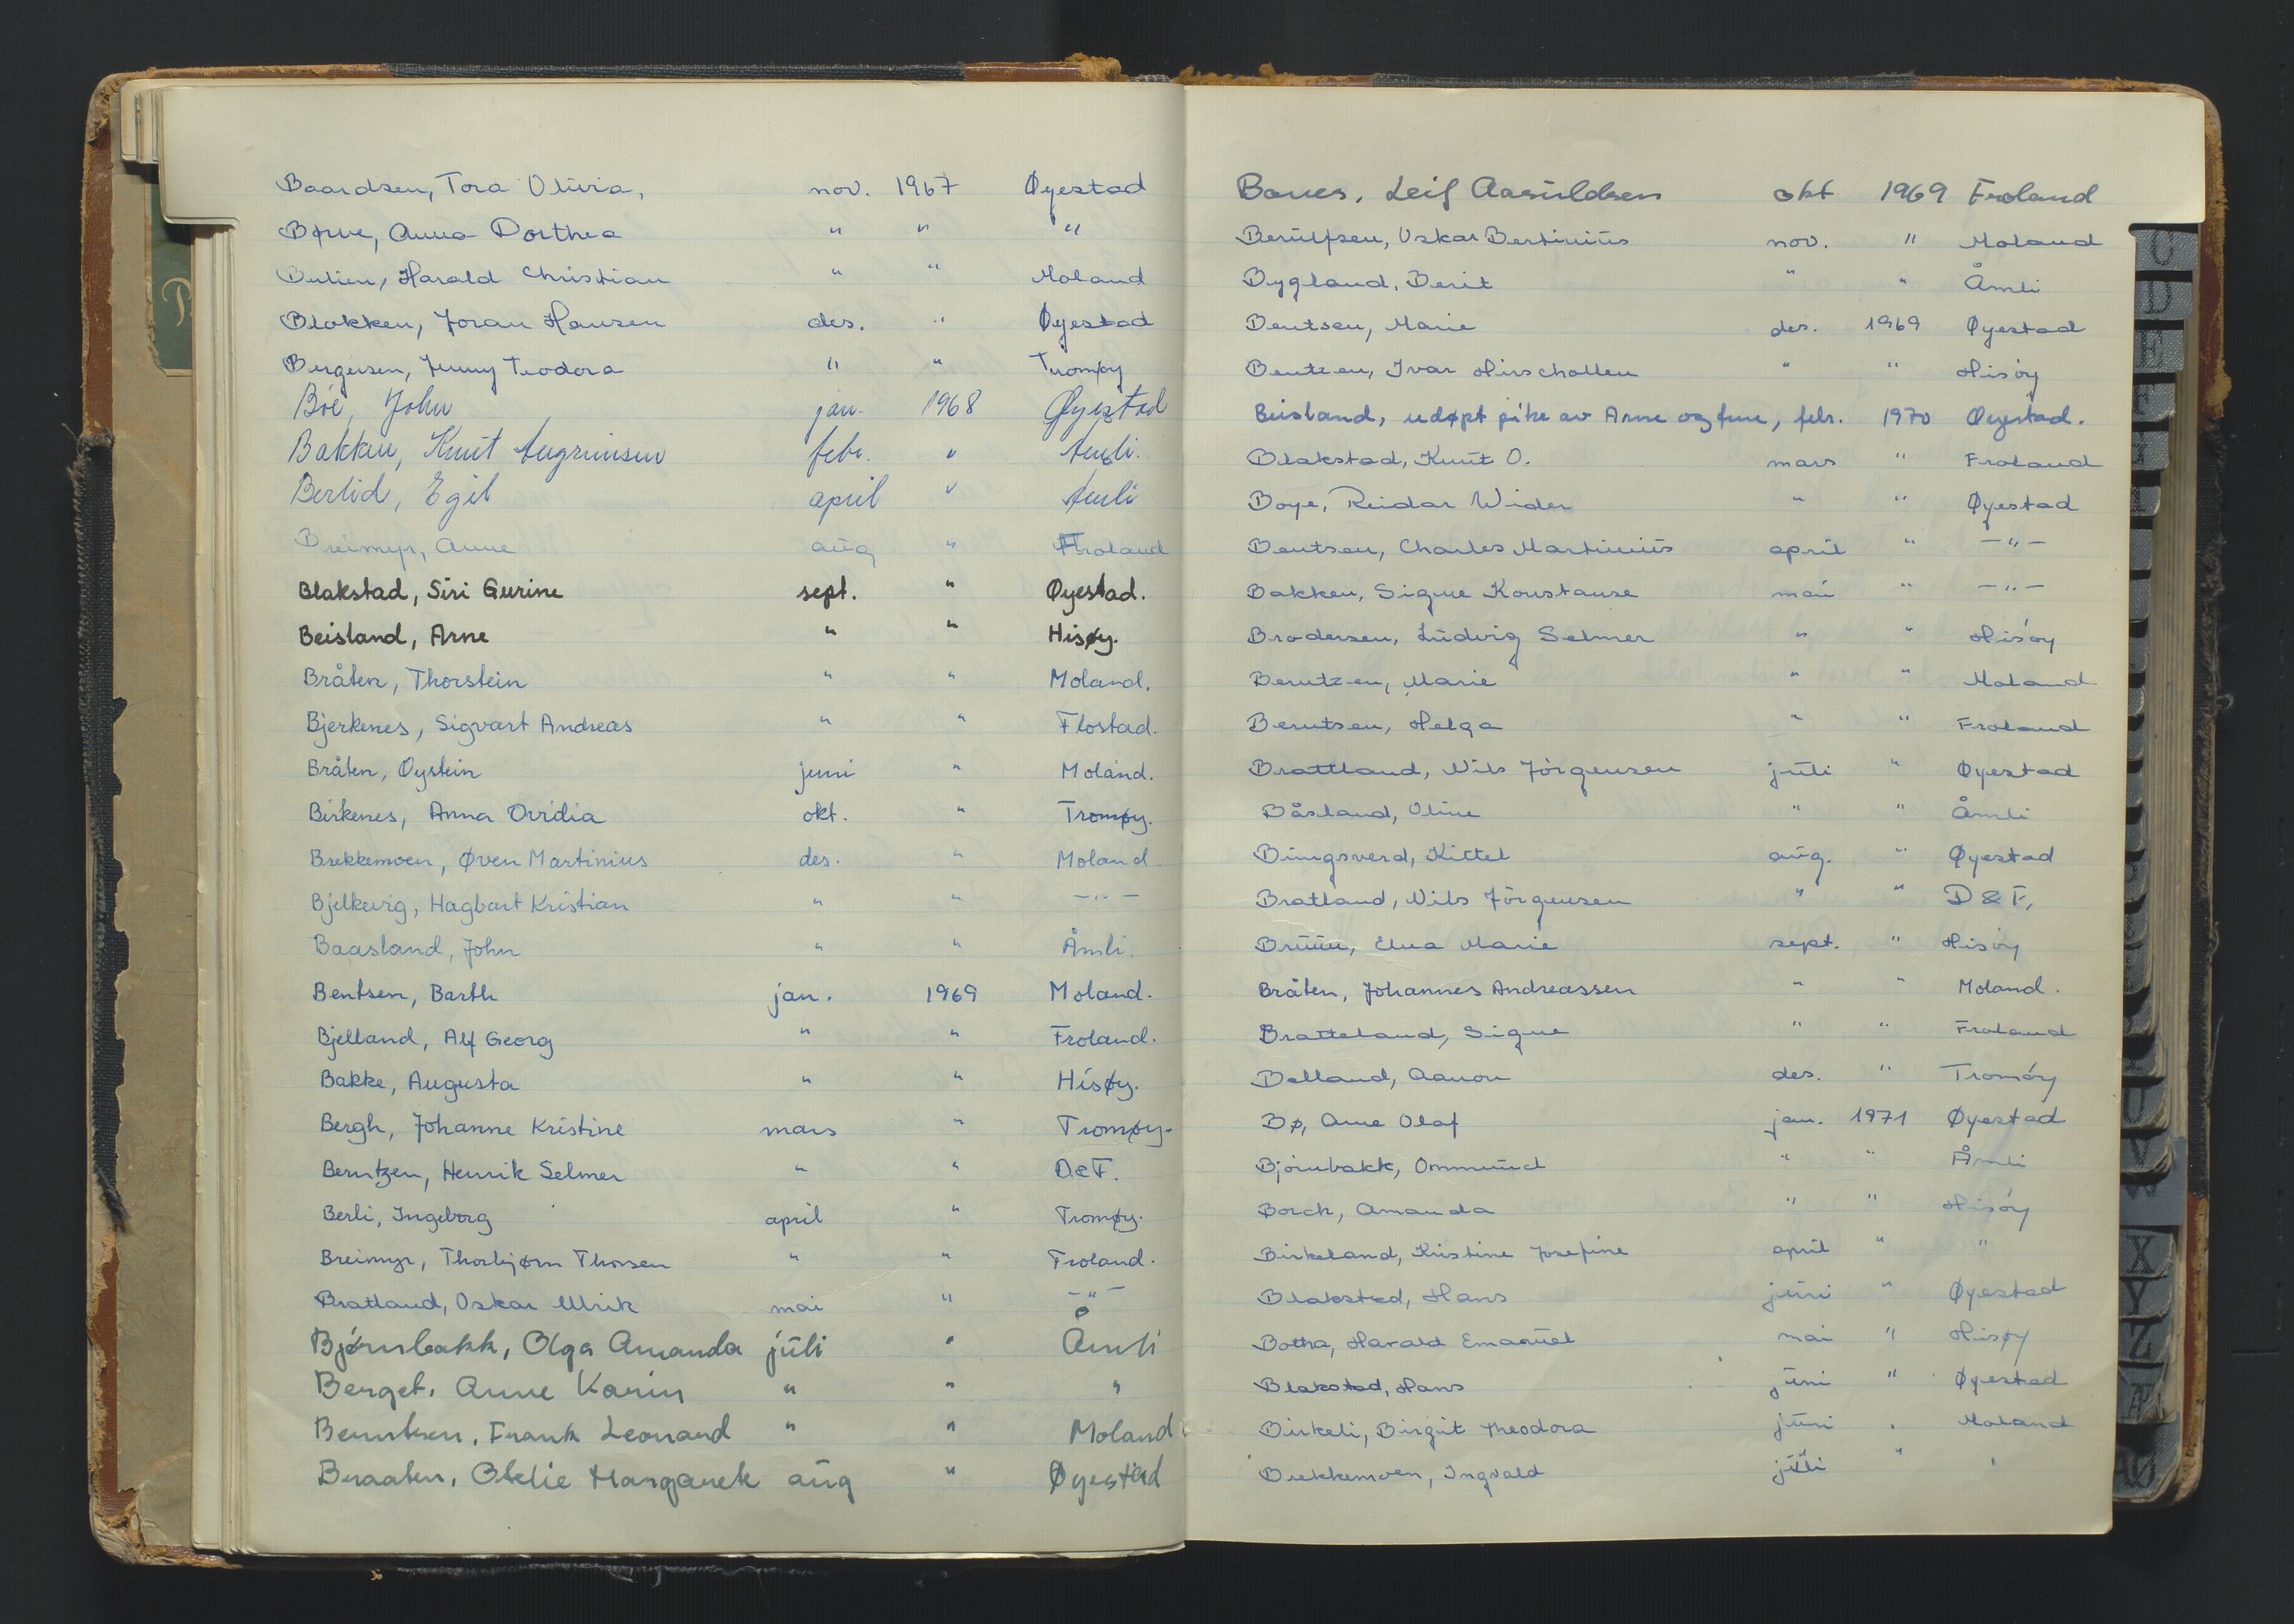 Baardsen, Tora Olivia, nov. 1967 Øyestad
Børve, Anna Dorthea " " "
Bulien, Harald Christian " " Moland
Blokken, Joran Hansen des. " Øyestad
Bergersen, Jenny Teodora " " Tromøy
Bøe, John jan. 1968 Øyestad
Bakken, Knut Augrimsen febr. " Amli.
Berlid, Egil april " Amli
Breimyr, Anne aug " Froland
Blakstad, Siri Gurine sept. " Øyestad.
Beisland, Arne " " Hisøy.
Bråten, Thorstein " " Moland.
Bjerkenes, Sigvart Andreas " " Flostad.
Bråten, Øystein juni " Moland.
Birkenes, Anna Ovidia okt. " Tromøy.
Brekkemoen, Øven Martinius des. " Moland.
Bjelkevig, Hagbart Kristian " " —"—
Baasland, John " " Åmli.
Bentsen, Barth jan. 1969 Moland.
Bjelland, Alf Georg " " Froland.
Bakke, Augusta " " Hisøy.
Bergh, Johanne Kristine mars " Tromøy.
Berntzen, Henrik Selmer " " D&F.
Berli, Ingeborg april " Tromøy.
Breimyr, Thorbjørn Thorsen " " Froland.
Bratland, Oskar Ulrik mai " —"—
Bjørnbakk, Olga Amanda juli " Åmli
Berget, Anne Karin " " "
Berntsen, Frank Leonard " " Moland
Braaten, Otelie Margarete aug " Øyestad
Bones, Leif Aasuldsen okt 1969 Froland
Berulfsen, Oskar Bertinius nov. " Moland
Bygland, Berit " " Åmli
Bentsen, Marie des. 1969 Øyestad
Bentzen, Ivar Hirscholten " " Hisøy
Beisland, udøpt pike av Arne og frue, febr. 1970 Øyestad.
Blakstad, Knut O. mars " Froland
Boye, Reidar Wider " " Øyestad
Bentsen, Charles Martinius april " —"—
Bakken, Signe Konstanse mai " —"—
Brodersen, Ludvig Selmer " " Hisøy
Berntzen, Marie " " Moland
Berntsen, Helga " " Froland
Brattland, Nils Jörgensen juli " Øyestad
Båsland, Oline " " Åmli
Bungsverd, Kittel aug. " Øyestad
Bratland, Nils Jörgensen " " D & F,
Bruun, Elna Marie sept. " Hisøy
Bråten, Johannes Andreassen " " Moland.
Bratteland, Signe " " Froland
Belland, Aanon des. " Tromøy
Bø, Arne Olaf jan. 1971 Øyestad
Bjørnbakk, Ommund " " Åmli
Borch, Amanda " " Hisøy
Birkeland, Kristine Josefine april " "
Blakstad, Hans juni " Øyestad
Botha, Harald Emanuel mai " Hisøy
Blakstad, Hans juni " Øyestad
Birkeli, Birgit Theodora juni " Moland
Brekkemoen, Ingvald juli " "
C
D
E
F
U
V
W
X
Y
Z